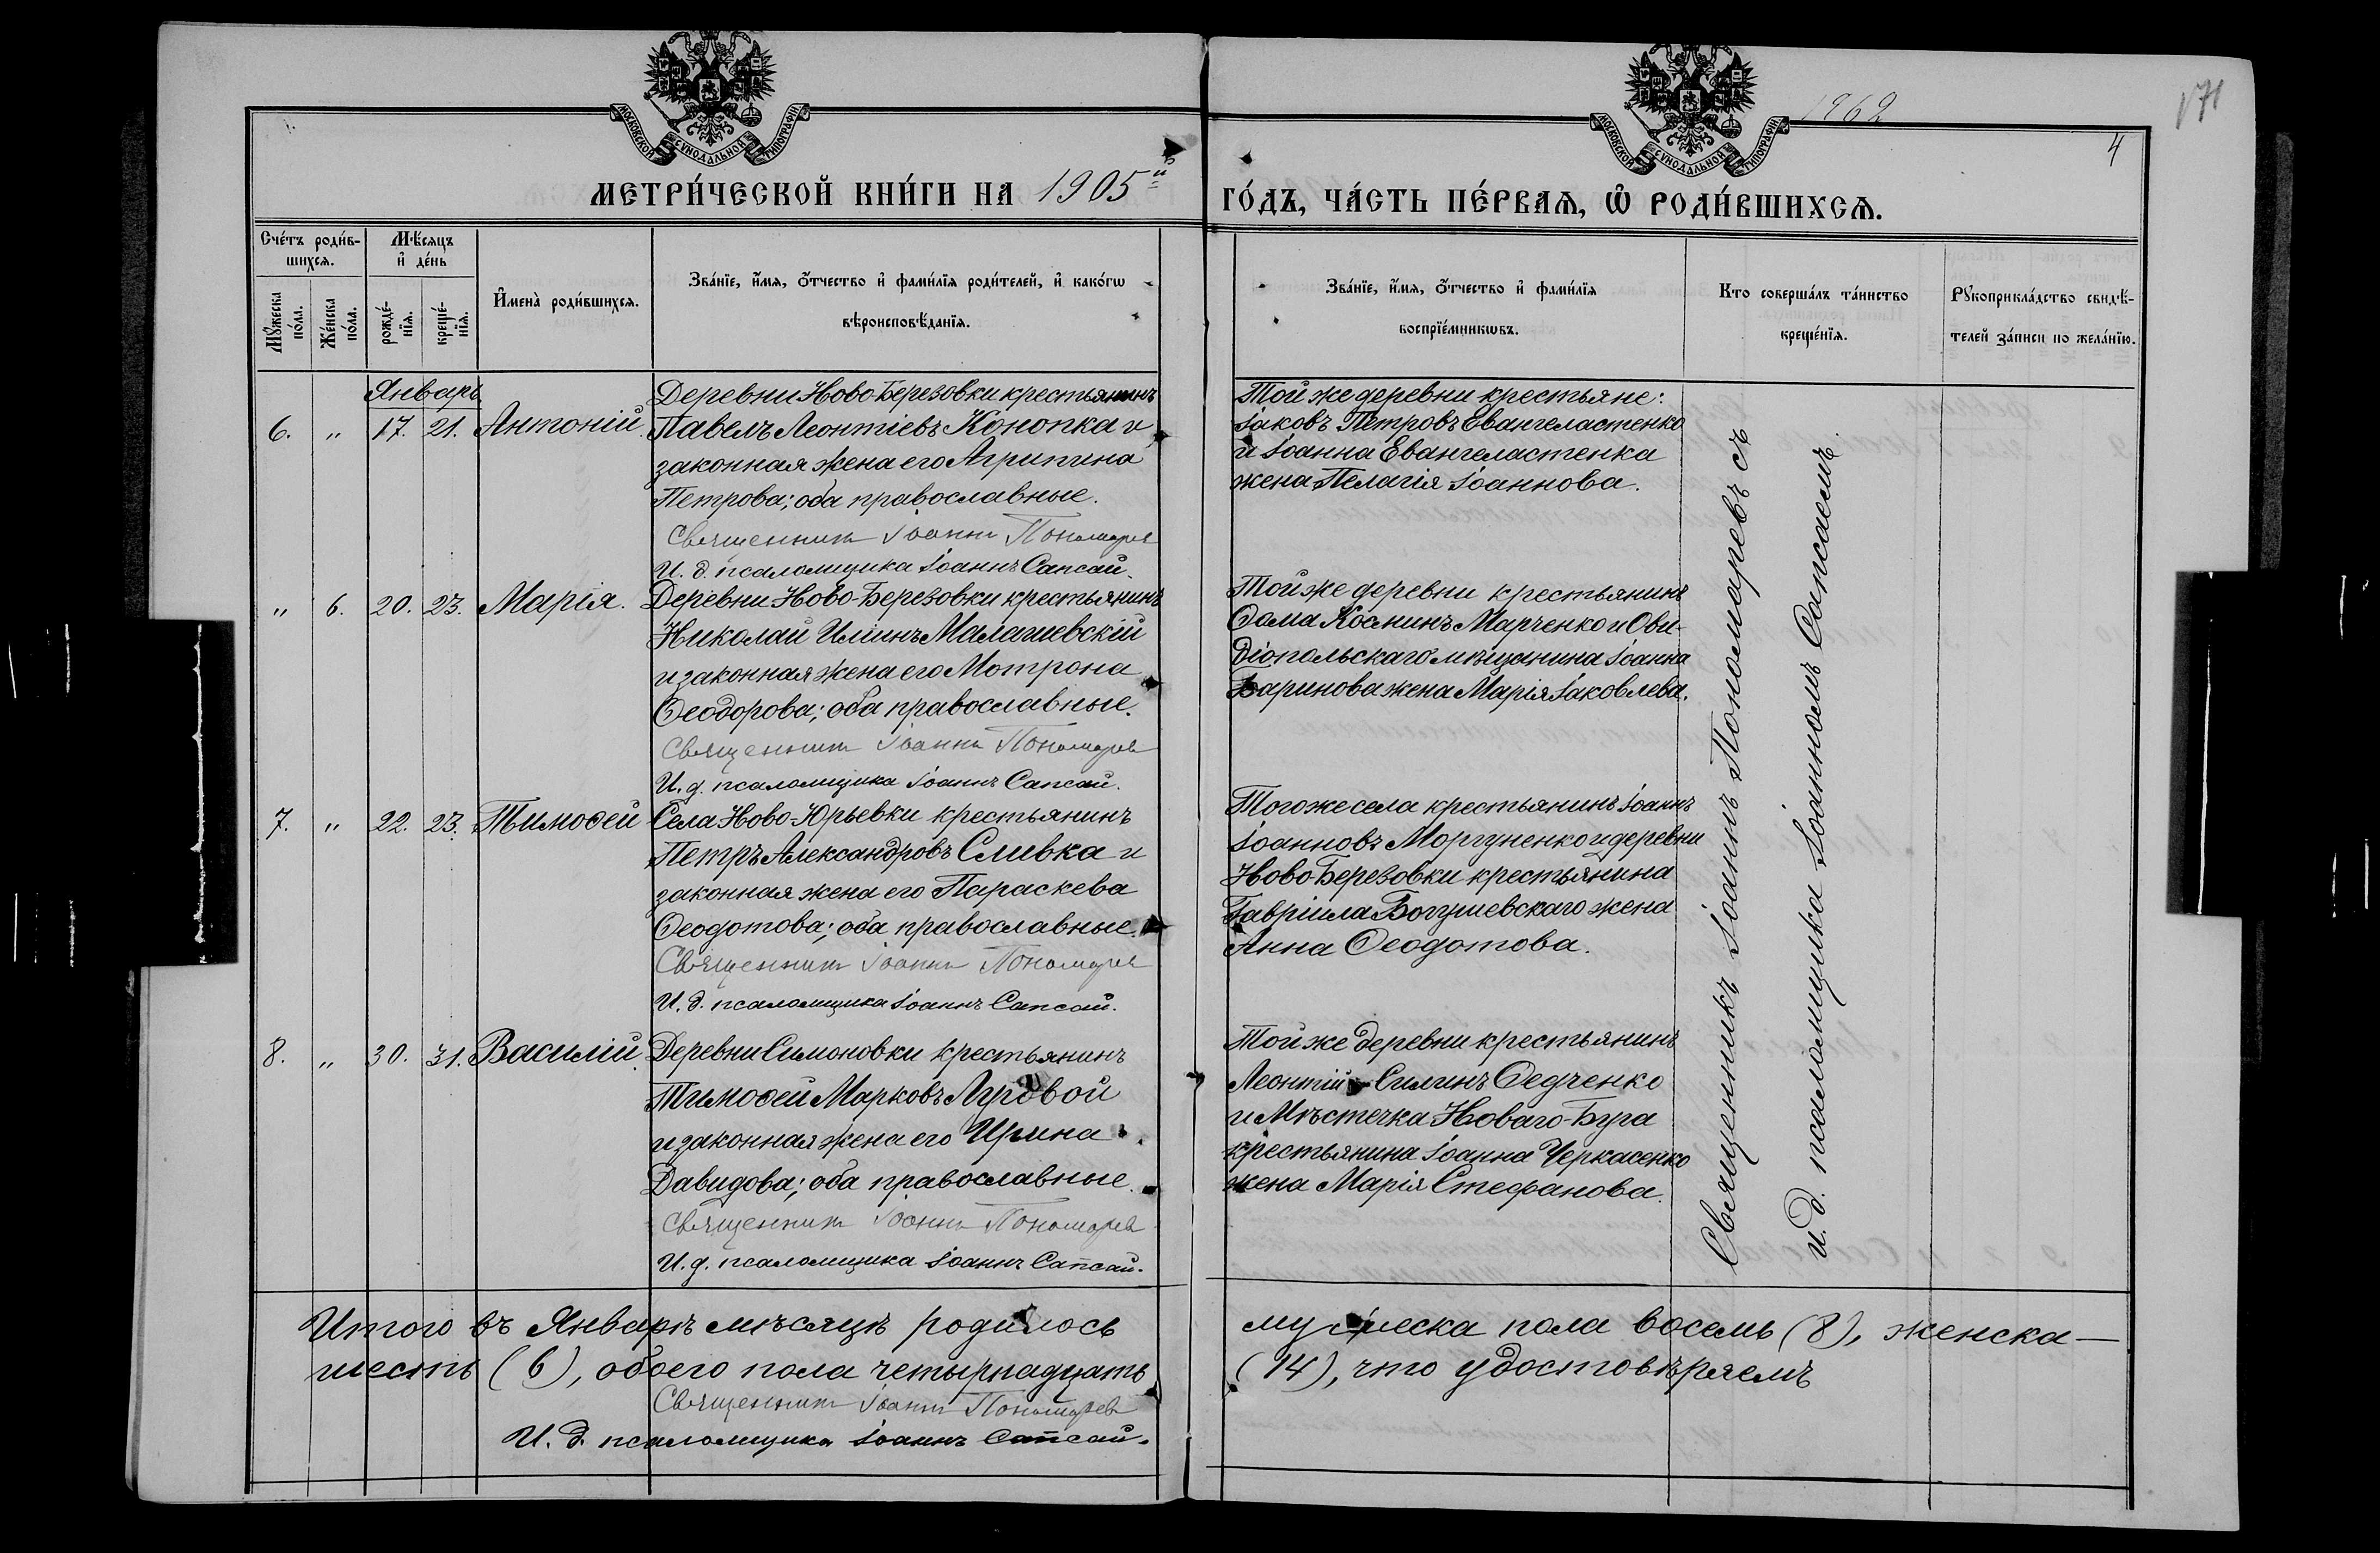 МОСКОВСКОЙ СѴНОДАЛЬНОЙ ТИПОГРАФІИ
МОСКОВСКОЙ СѴНОДАЛЬНОЙ ТИПОГРАФІИ
1862
4
МЕТРИ́ЧЕСКОЙ КНИ́ГИ НА 1905й
ГО́ДЪ, ЧА́СТЬ ПЕ́РВАѦ, Ѡ҆ РОДИ́ВШИХСѦ.
Сче́тъ роди́в-
шихсѧ.
Мꙋжеска
по́ла.
Же́нска
по́ла.
Мѣ́сѧцъ
и҆ де́нь
рожде́-
нїѧ.
креще́-
нїѧ.
И҆мена̀ роди́вшихсѧ.
Зва́нїе, и҆́мѧ, ѻ҆́тчество и҆ фами́лїѧ роди́телей, и҆ како́гѡ
вѣроисповѣ́данїѧ.
Зва́нїе, и҆́мѧ, ѻ҆́тчество и҆ фами́лїѧ
воспрїе́мникѡвъ.
Кто соверша́лъ та́инство
креще́нїѧ.
Рꙋкоприкла́дство свидѣ́-
телей за́писи по жела́нїю.
Январь
6. " 17. 21. Антоній.
Деревни Ново-Березовки крестьянинъ
Павелъ Леонтіевъ Конопка и
законная жена его Агрипина
Петрова; оба православные.
Священникъ Іоаннъ Пономарев
И. д. псаломщика Іоаннъ Сапсай.
Той же деревни крестьяне:
Іаковъ Петровъ Евангеластенко
и Іоанна Евангеластенка
жена Пелагія Іоаннова.
" 6. 20. 23. Марія.
Деревни Ново-Березовки крестьянинъ
Николай Илiинъ Малашевскій
и законная жена его Мотрона
Ѳеодорова; оба православные.
Священникъ Іоаннъ Пономарев
И. д. псаломщика Іоаннъ Сапсай.
Той же деревни крестьянинъ
Ѳома Косминъ Марченко и Ови-
діопольскаго мѣщанина Іоанна
Баринова жена Марія Іаковлева.
7. " 22. 23. Тимоѳей
Села Ново-Юрьевки крестьянинъ
Петръ Александровъ Сливка и
законная жена его Параскева
Ѳеодотова; оба православные.
Священникъ Іоаннъ Пономарев
И. д. псаломщика Іоаннъ Сапсай.
Того же села крестьянинъ Іоаннъ
Іоанновъ Моргуненко и деревни
Ново Березовки крестьянина
Гавріила Богушевскаго жена
Анна Ѳеодотова.
8. " 30. 31. Василій.
Деревни Симоновки крестьянинъ
Тимоѳей Марковъ Луговой
и законная жена его Ирина
Давидова; оба православные.
Священникъ Іоаннъ Пономарев
И. д. псаломщика Іоаннъ Сапсай.
Той же деревни крестьянинъ
Леонтій Силинъ Ѳедченко
и Мѣстечка Новаго-Буга
крестьянина Іоанна Черкасенко
жена Марія Стефанова.
Священникъ Іоаннъ Пономаревъ съ
и. д. псаломщика Іоанномъ Сапсаемъ.
Итого въ Январѣ мѣсяцѣ родилось мужеска пола восемь (8), женска —
шесть (6), обоего пола четырнадцать (14), что удостовѣряемъ
Священникъ Іоаннъ Пономарев
И. д. псаломщика Іоаннъ Сапсай.